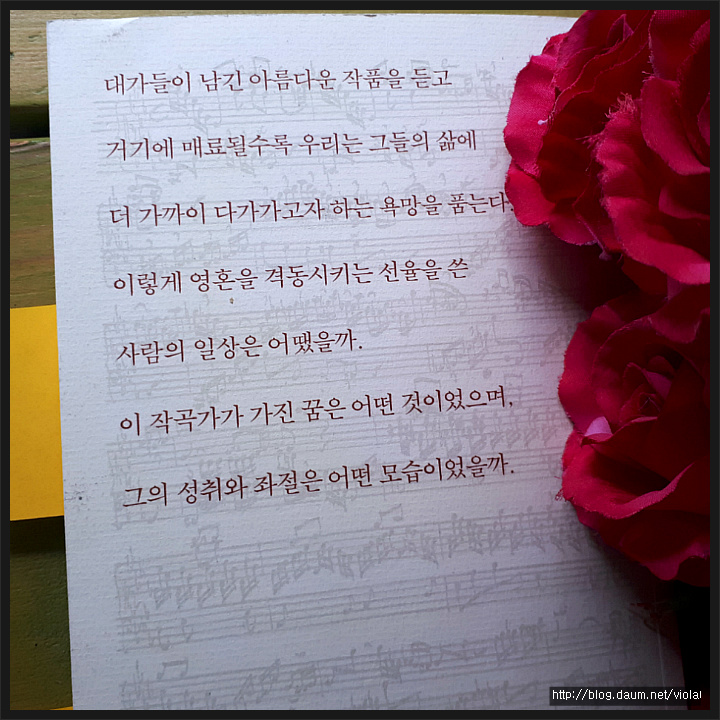 대가들이 남긴 아름다운 작품을 듣고
거기에 매료될수록 우리는 그들의 삶에
더 가까이 다가가고자 하는 욕망을 품는다.
이렇게 영혼을 격동시키는 선율을 쓴
사람의 일상은 어땠을까.
이 작곡가가 가진 꿈은 어떤 것이었으며,
그의 성취와 좌절은 어떤 모습이었을까.
http://blog.daum.net/viola